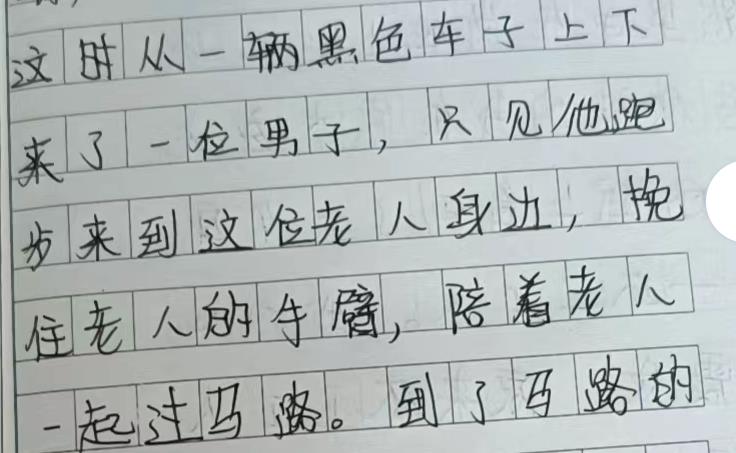 这时从一辆黑色车子上下
来了一位男子，只见他跑
步来到这位老人身边，挽
住老人的手臂，陪着老人
一起过马路。到了马路的